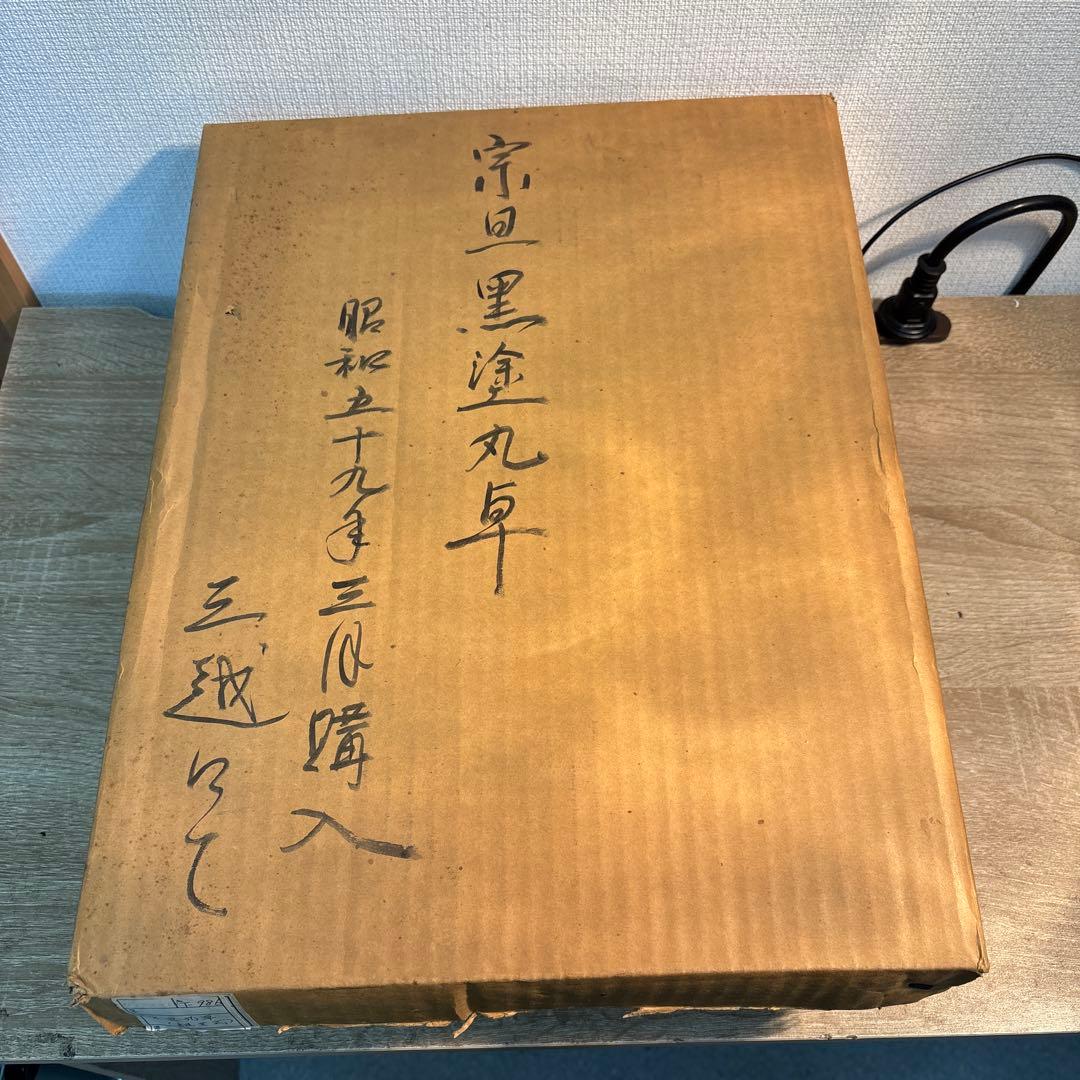 宗旦黒塗丸卓
昭和五十九年三月購入
三越にて